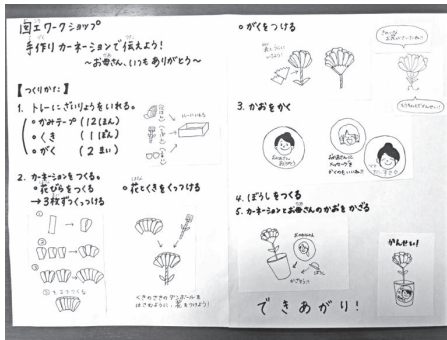 図工ワークショップ
手作り カーネーションで伝えよう!
～お母さん、いつも ありがとう～
【つくりかた】
1. トレーにざいりょうをいれる。
○かみテープ(12ほん)
○くき (1ぽん)
○がく (2まい)
2. カーネーションをつくる。
○花びらをつくる
→3枚ずつくっつける
①
②
③
○花とくきをくっつける
くきのさきのダンボールを
はさむように、花をつけよう!
○がくをつける
3. かおをかく
4. ぼうしをつくる
5. カーネーションとお母さんのかおをかざる
かんせい!
できあがり!